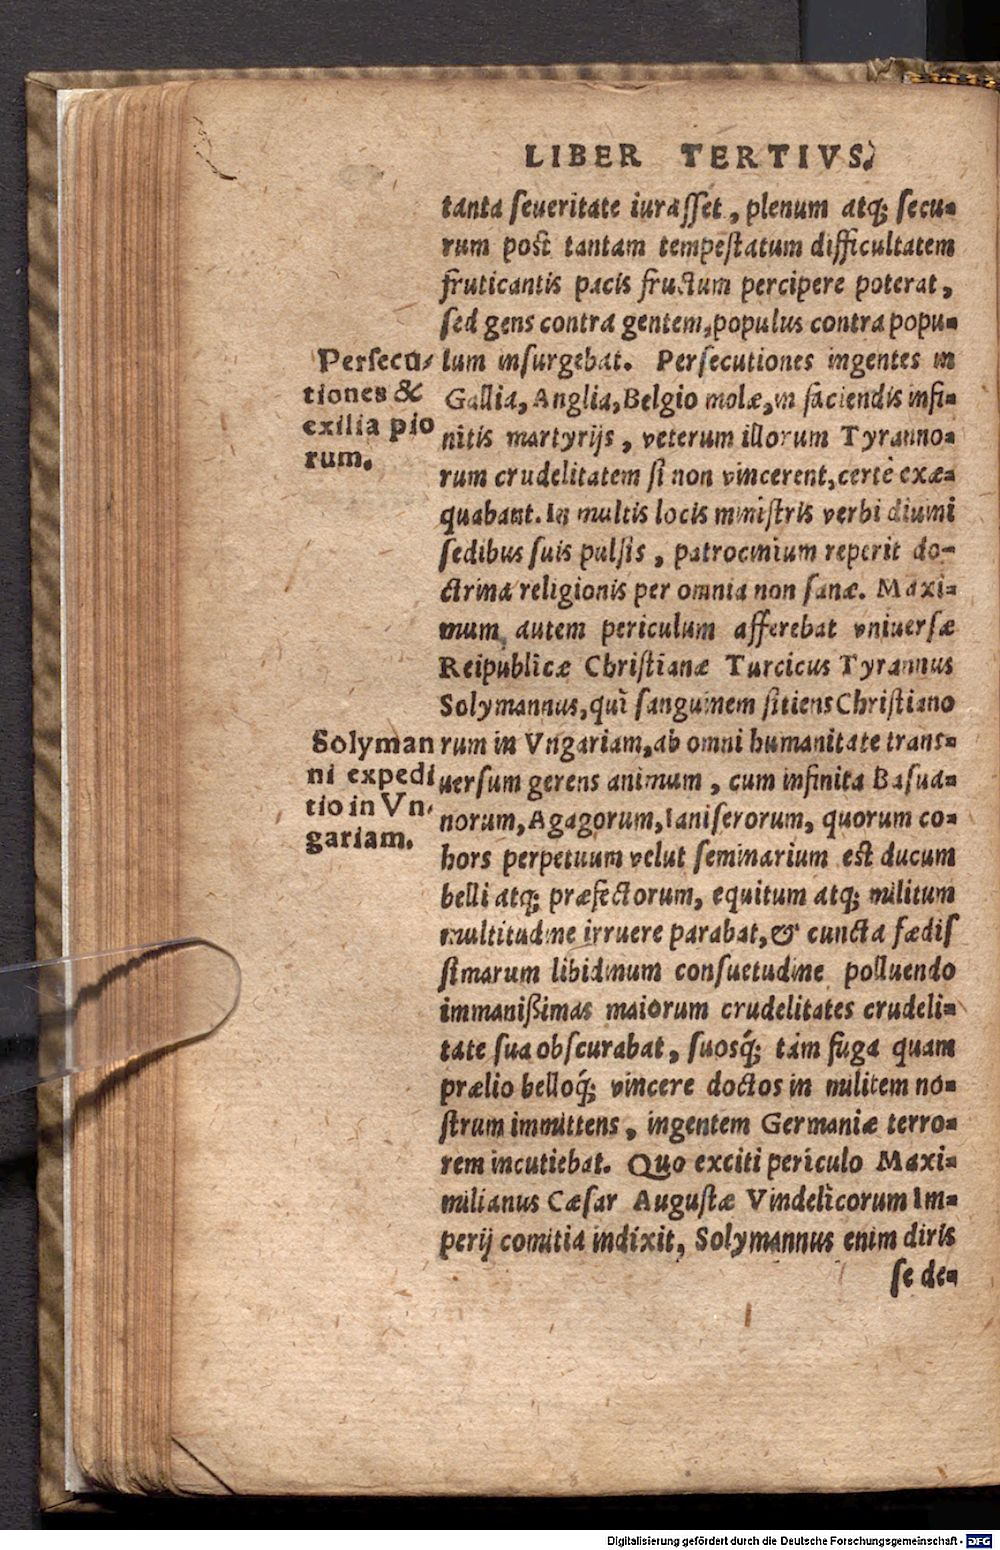 LIBER TERTIVS.
tanta ſeueritate iuraſſet, plenum atq; ſecu-
rum poſt tantam tempeſtatum difficultatem
fruticantis pacis fructum percipere poterat,
ſed gens contra gentem, populus contra popu-
lum inſurgebat. Perſecutiones ingentes in
Gallia, Anglia, Belgio molæ, in faciendis infi-
nitis martyrijs, veterum illorum Tyranno-
rum crudelitatem ſi non vincerent, certè exæ-
quabant. In multis locis miniſtris verbi diuini
ſedibus ſuis pulſis, patrocinium reperit do-
ctrina religionis per omnia non ſanæ. Maxi-
mum autem periculum afferebat vniuerſæ
Reipublicæ Chriſtianæ Turcicus Tyrannus
Solymannus, quì ſanguinem ſitiens Chriſtiano
rum in Vngariam, ab omni humanitate trans-
uerſum gerens animum, cum infinita Baſua-
norum, Agagorum, Ianiſerorum, quorum co-
hors perpetuum velut ſeminarium eſt ducum
belli atq; præfectorum, equitum atq; militum
multitudine irruere parabat, & cuncta fædiſ
ſimarum libidinum conſuetudine polluendo
immanißimas maiorum crudelitates crudeli-
tate ſua obſcurabat, ſuosq́; tàm fuga quam
prælio belloq́; vincere doctos in militem no-
ſtrum immittens, ingentem Germaniæ terro-
rem incutiebat. Quo exciti periculo Maxi-
milianus Cæſar Auguſtæ Vindelìcorum Im-
perij comitia indixit, Solymannus enim diris
ſe de-
Perſecu-
tiones &
exilia pio
rum.
Solyman
ni expedi
tio in Vn-
gariam.
Digitalisierung gefördert durch die Deutsche Forschungsgemeinschaft - DFG